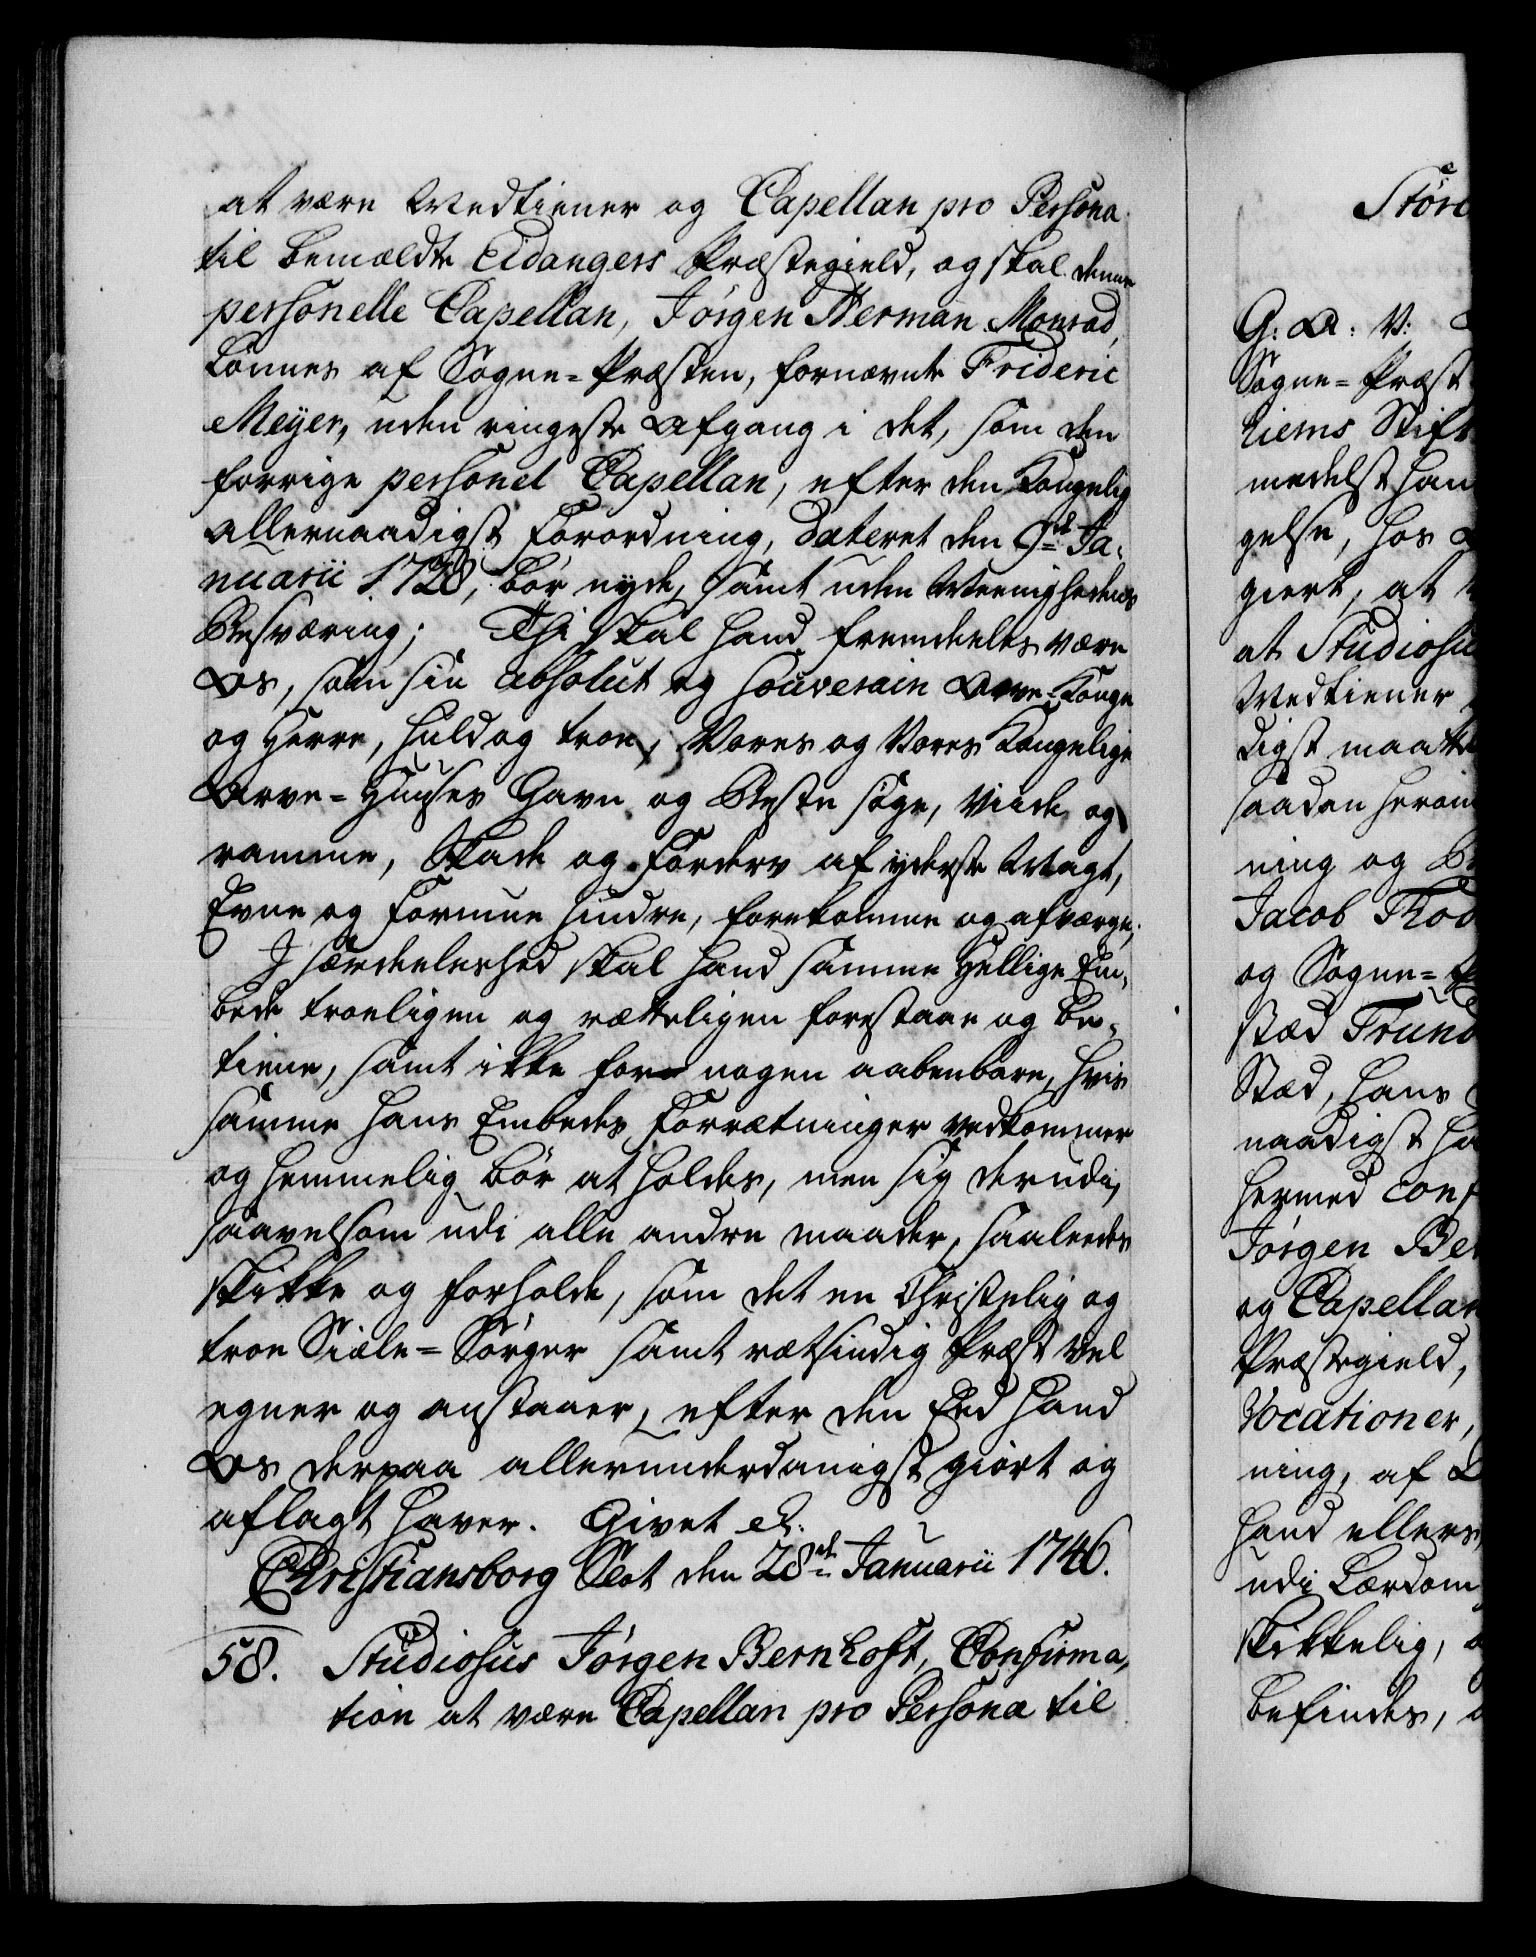 at være Medtiener og Capellan pro Persona
til bemældte Eidangers Præstegield, og skal denne
personelle Capellan, Jørgen Herman Monrad,
lønnes af Sogne-Præsten, fornævnte Frideric
Meÿer, uden ringeste Afgang i det, som den
forrige personel Capellan, efter den Kongelig
allernaadigst Forordning, dateret den 9de Ja-
nuarii 1728, bør nyde, samt uden Meenighedens
Besværing; Thi skal hand fremdeeles være
Os, som sin absolut og souverain Arve-Konge
og Herre, huld og troe, Vores og Vores Kongelige
Arve-Huuses Gavn og Beste søge, Viide og
ramme, Skade og Forderv af yderste Magt,
Evne og Formue hindre, forekomme og afværge,
I særdeeleshed skal hand samme Hellige Em-
bede troeligen og rætteligen forestaae og be-
tiene, samt ikke for nogen aabenbare, hvis
samme hans Embedes Forrætninger vedkommer
og hemmelig bør at holdes, men sig derudi,
saavelsom udi alle andre maader, saaleedes
skikke og forholde, som det en Christelig og
troe Siæle-Sørger samt rætsindig Præst vel
egner og anstaaer, efter den Eed hand
Os derpaa allerunderdanigst giort og
aflagt haver. Givet &.
Christiansborg Slot den 28de Januarii 1746.
58. Studiosus Jørgen Bernhoft, Confirma-
tion at være Capellan pro Persona til
Støre
G: A: V:
Sogne-Præst
hiems Stift
medelst han
gelse, hos
giort, at
at Studiosu
Medtiener
digst maatte
saadan herom
ning og
Jacob
og Sogne-
stæd Trund
Stæd, hans
naadigst ha
hermed Conf
Jørgen Ber
og Capellan
Præstegield,
Vocationer,
ning, af
hand ellers
udi Lærdom
skikkelig,
befindes,